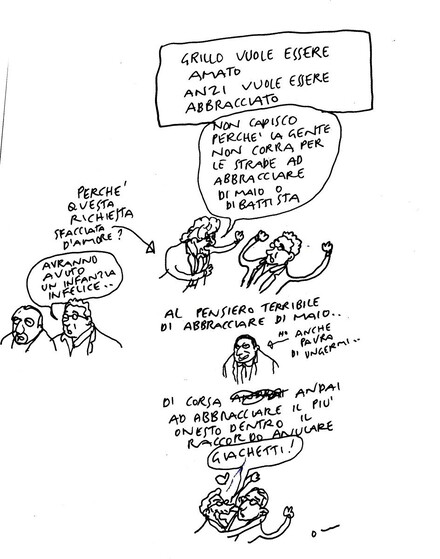 GRILLO VUOLE ESSERE
AMATO
ANZI VUOLE ESSERE
ABBRACCIATO
NON CAPISCO
PERCHE' LA GENTE
NON CORRA PER
LE STRADE AD
ABBRACCIARE
DI MAIO O
DI BATTISTA
PERCHE'
QUESTA
RICHIESTA
SFACCIATA
D'AMORE?
AVRANNO
AVUTO
UN INFANZIA
INFELICE..
AL PENSIERO TERRIBILE
DI ABBRACCIARE DI MAIO..
HO ANCHE
PAURA
DI UNGERMI..
DI CORSA ANDAI
AD ABBRACCIARE IL PIU'
ONESTO DENTRO IL
RACCORDO ANULARE
GIACHETTI!